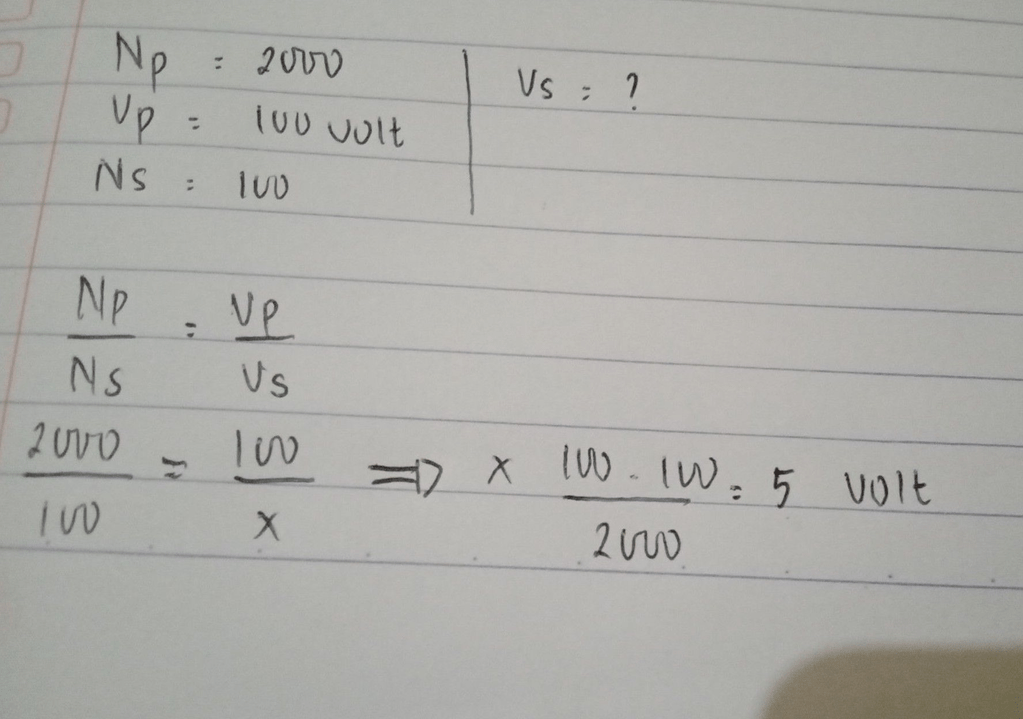 Np = 2000
Vp = 100 volt
Ns = 100
Vs = ?
Np/Ns = Vp/Vs
2000/100 = 100/x ⇒ x 100 . 100/2000 = 5 volt